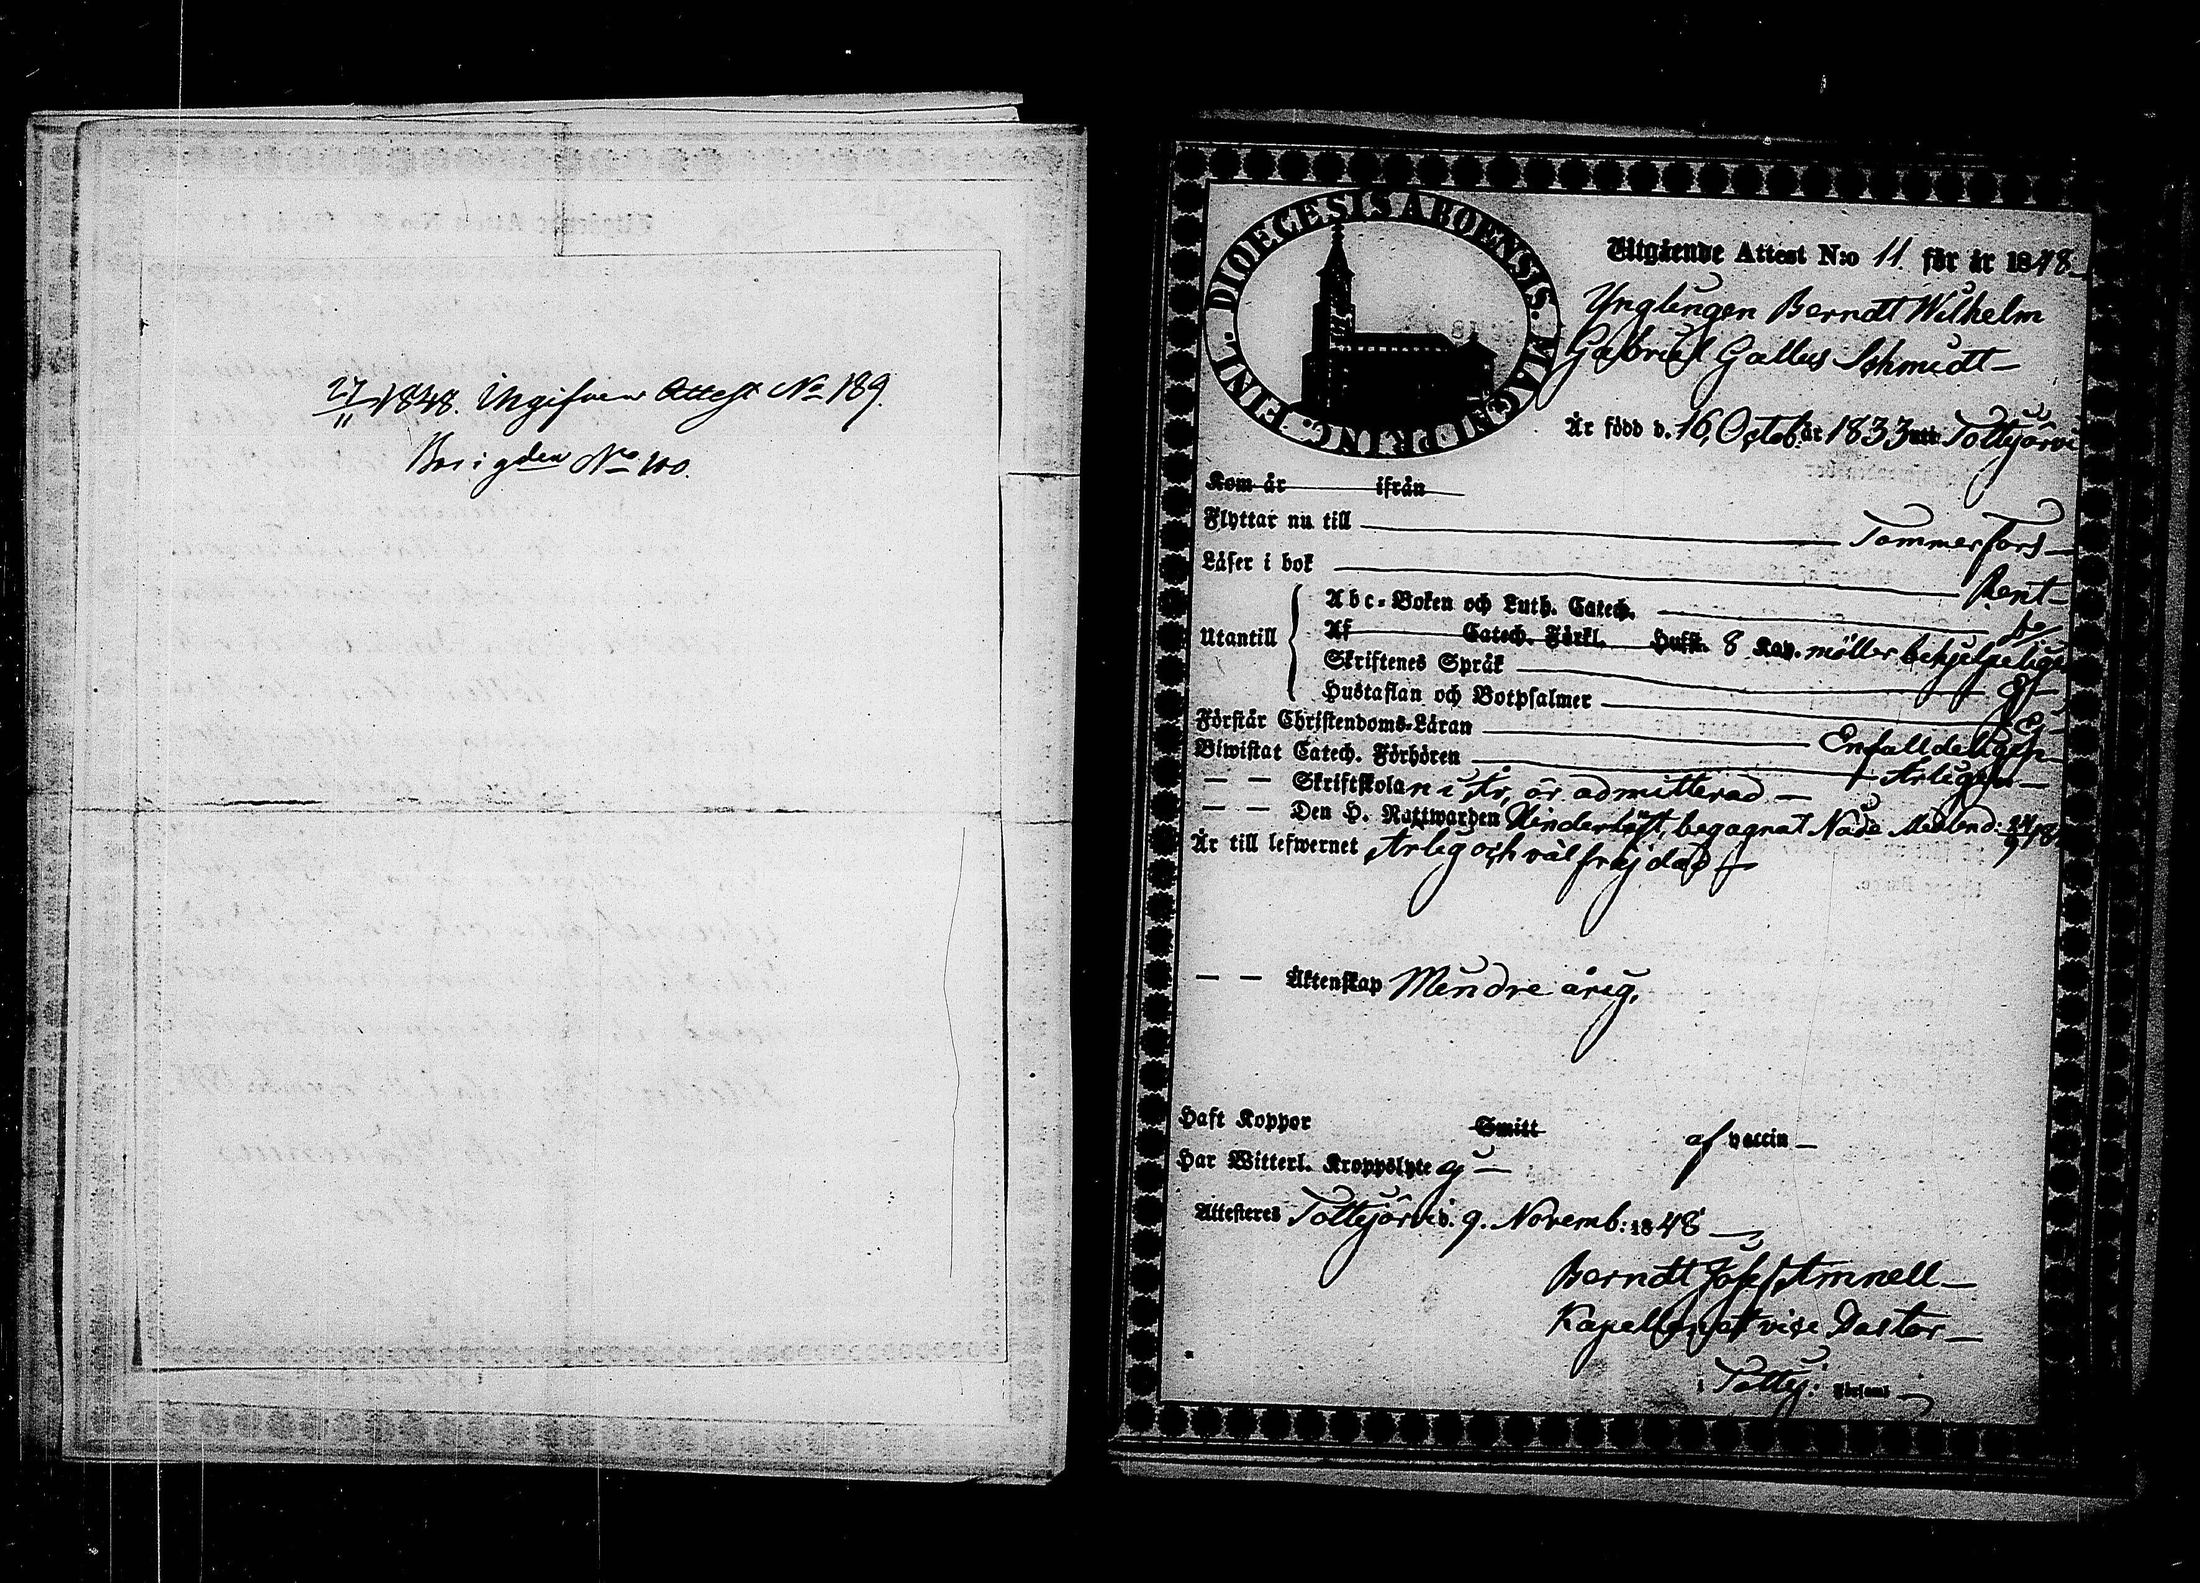 27/11 1848. Ingifven Attest No 189.
No 100.
DIOECESIS ABOENSIS. MAGNI PRINC. FINL.
Utgående Attest N:o 11. för år 1848
Ynglingen Berndt Wilhelm
Gabriel Gallus Schmidt
Är född d. 16 Octob. år 1833 uti Tottijärvi
Kom år ifrån
Flyttar nu till Tammerfors
Läser i bok Rent
Utantill
Abc-Boken och Luth. Catech.
Af Catech. Förkl. Hufst. 8 Kap. möller behjelpeligen
Skriftenes Språk Ej
Hustaflan och Botpsalmer Ej
Förstår Christendoms-Läran Enfalldeligen
Biwistat Catech. Förhören Årligen
— — Skriftskolan i År, är admitterad
— — Den H. Nattwarden Hinderlöst, begagnat Nåde Medlend: 24/9 48
Är till lefwernet Ärlig och väl frejdad
— — Äktenskap Mindre årig,
Haft Koppor Smitt af vaccin
Har Witterl. Kroppslyte ej
Attesteras Tottijärvi d. 9. Novemb: 1848
Berndt Jos. Amnell
Kapellan att vice Pastor
i Tottij: Förfaml